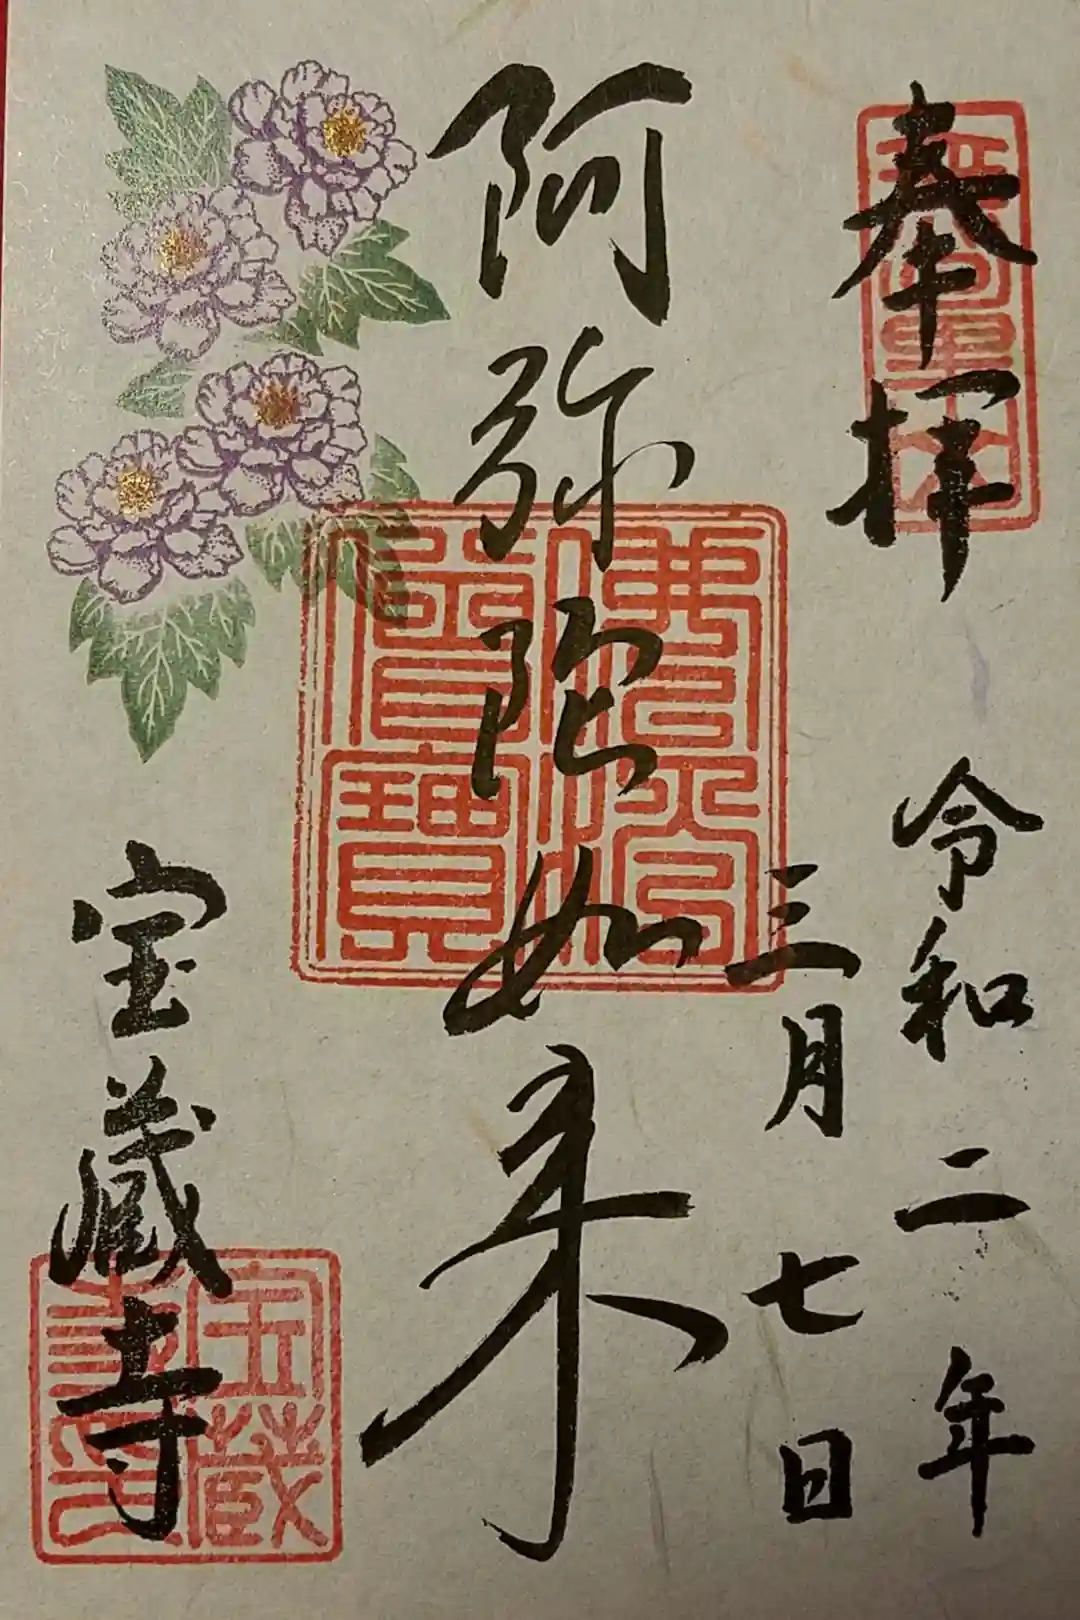 奉拝
令和二年
三月七日
阿弥陀如来
佛法僧寶
宝蔵寺
宝蔵寺印